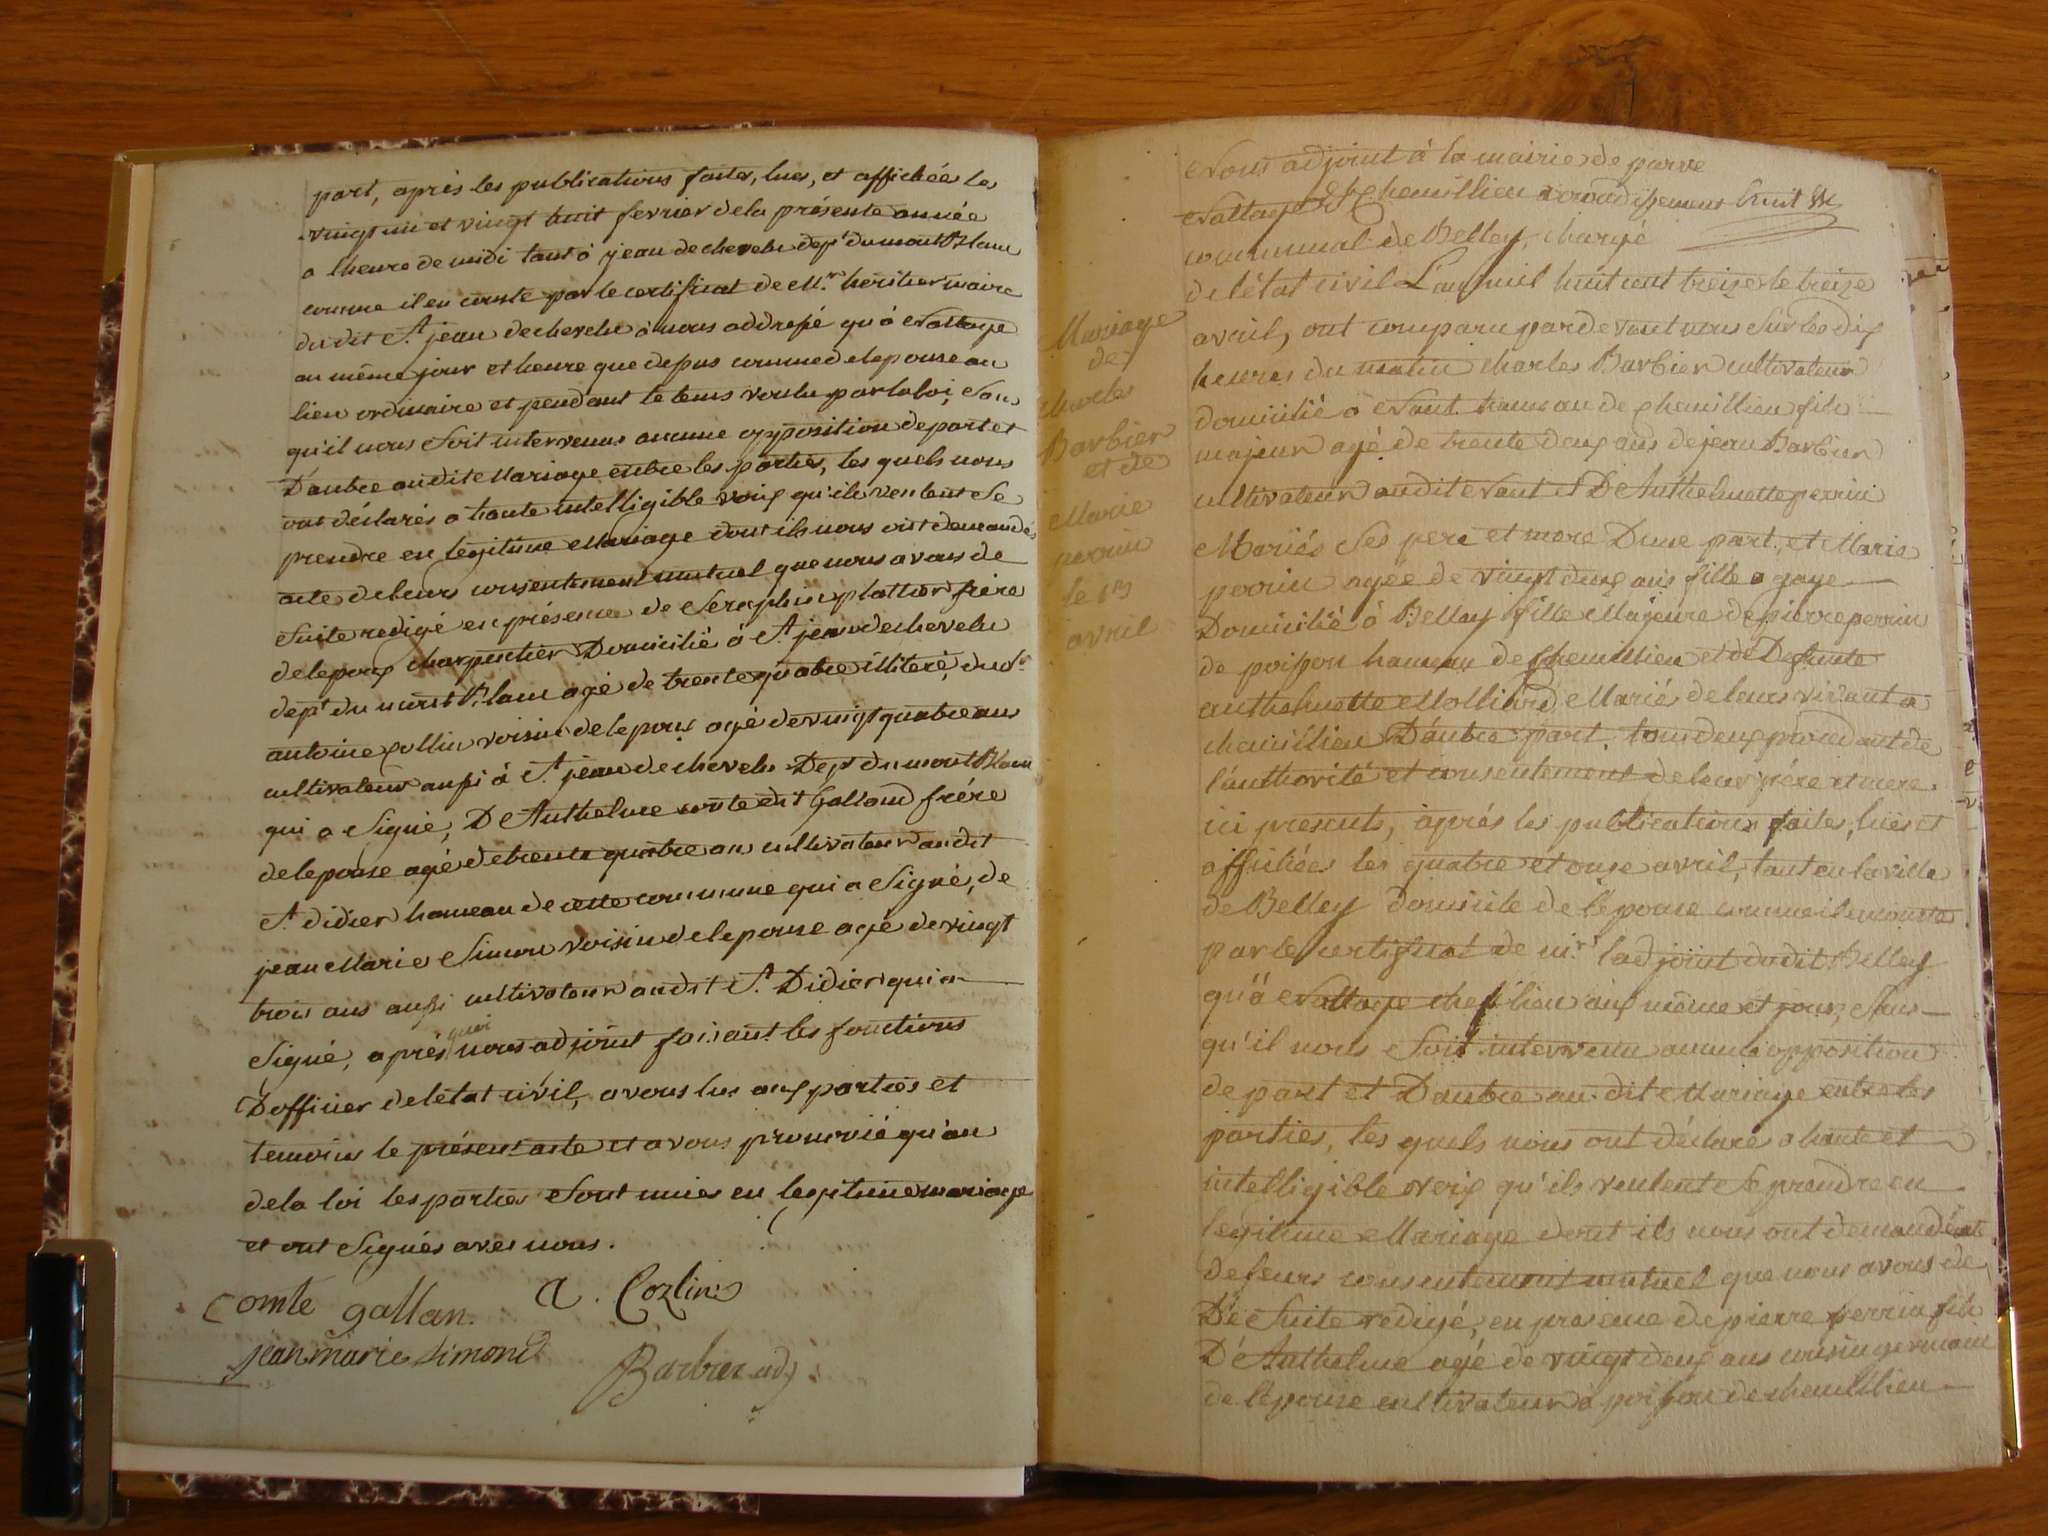 part, après les publications faites, lues, et affichées les
vingt un et vingt huit fevrier dela présente année
a lheure de midi tant à jean dechevelu dept du mont Blanc
comme il en conste par le certificat de Mr. heritier maire
du dit St. jean dechevelu à nous addressé qu'à Nattage
au même jour et heure que depus comme delepouse au
lieu ordinaire et pendant le tems voulu par la loi, sans
qu'il nous soit intervenus aucune opposition depart et
Dautre audit Mariage entre les parties, les quels nous
ont déclarés a haute intelligible voix qu'ils veulent se
prendre en legitime Mariage dont ils nous ont demandés
acte deleurs consentement mutuel que nous avons de
suite redigé en présence de Seraphin plattier frère
delepoux charpentier Domicilié à St. jean dechevelu
dept du mont Blanc agé de trente quatre illiteré, dud.
antoine collin voisin delepoux agé devingt quatre ans
cultivateur aussi à St. jean dechevelu Dept du mont Blanc
qui a Signé, D'Anthelme comte dit Galland frére
delepouse agé detrente quatre ans cultivateur audit
St. didier hameau de cette commune qui a Signé, de
jean Marie Simon voisin delepouse agé devingt
trois ans aussi cultivateur audit St. Didier qui a
Signé, après quoi nous adjoint faisant les fonctions
Dofficier deletat civil, avons lus aux parties et
temoins le présent acte et avons prononcé qu'au
dela loi les parties sont unies en legitime mariage
et ont Signés avec nous.
Comte gallan. a. Cozlin
jean marie simond
Barbier adj
Nous adjoint à la mairie de parve
Nattage & Chemillieu arrondissement
communal de Belley, chargé
de l'état civil L'an mil huit cent treize le treize
avril, ont comparu pardevant nous sur les dix
heures du matin charles Barbier cultivateur
domicilié à Nant hameau de chemillieu fils
majeur agé de trente deux ans de jean Barbier
cultivateur audit Nant et D'Anthelmette perrin
Mariés Ses pere et mere Dune part, et Marie
perrin agée de vingt deux ans fille a gage
Domicilié à Belley fille Majeure de pierre perrin
de poisson hameau de chemillieu et de Defunte
anthelmette Molliard Mariés de leurs vivant a
chemillieu Dautre part, tous deux procedant de
l'authorité et consentement de leur pére et mere
ici presents, aprés les publications faites, lues et
affichées les quatre et onze avril, tant en la ville
de Belley domicile de l'épouse comme il en conste
par le certificat de mr. ladjoint dudit Belley
qu'à Nattage chef lieu aux même et jour, sans
qu'il nous soit intervenu aucune opposition
de part et Dautre au dit Mariage entre les
parties, les quels nous ont déclaré a haute et
intelligible voix qu'ils veulent se prendre en
legitime Mariage dont ils nous ont demandé acte
de leurs consentement mutuel que nous avons de
De Suite redigé, en presence de pierre perrin fils
D'Anthelme agé de vingt deux ans cousin germain
de l'epouse cultivateur à poisson de chemillieu
Mariage
de
charles
Barbier
et de
Marie
perrin
le
avril